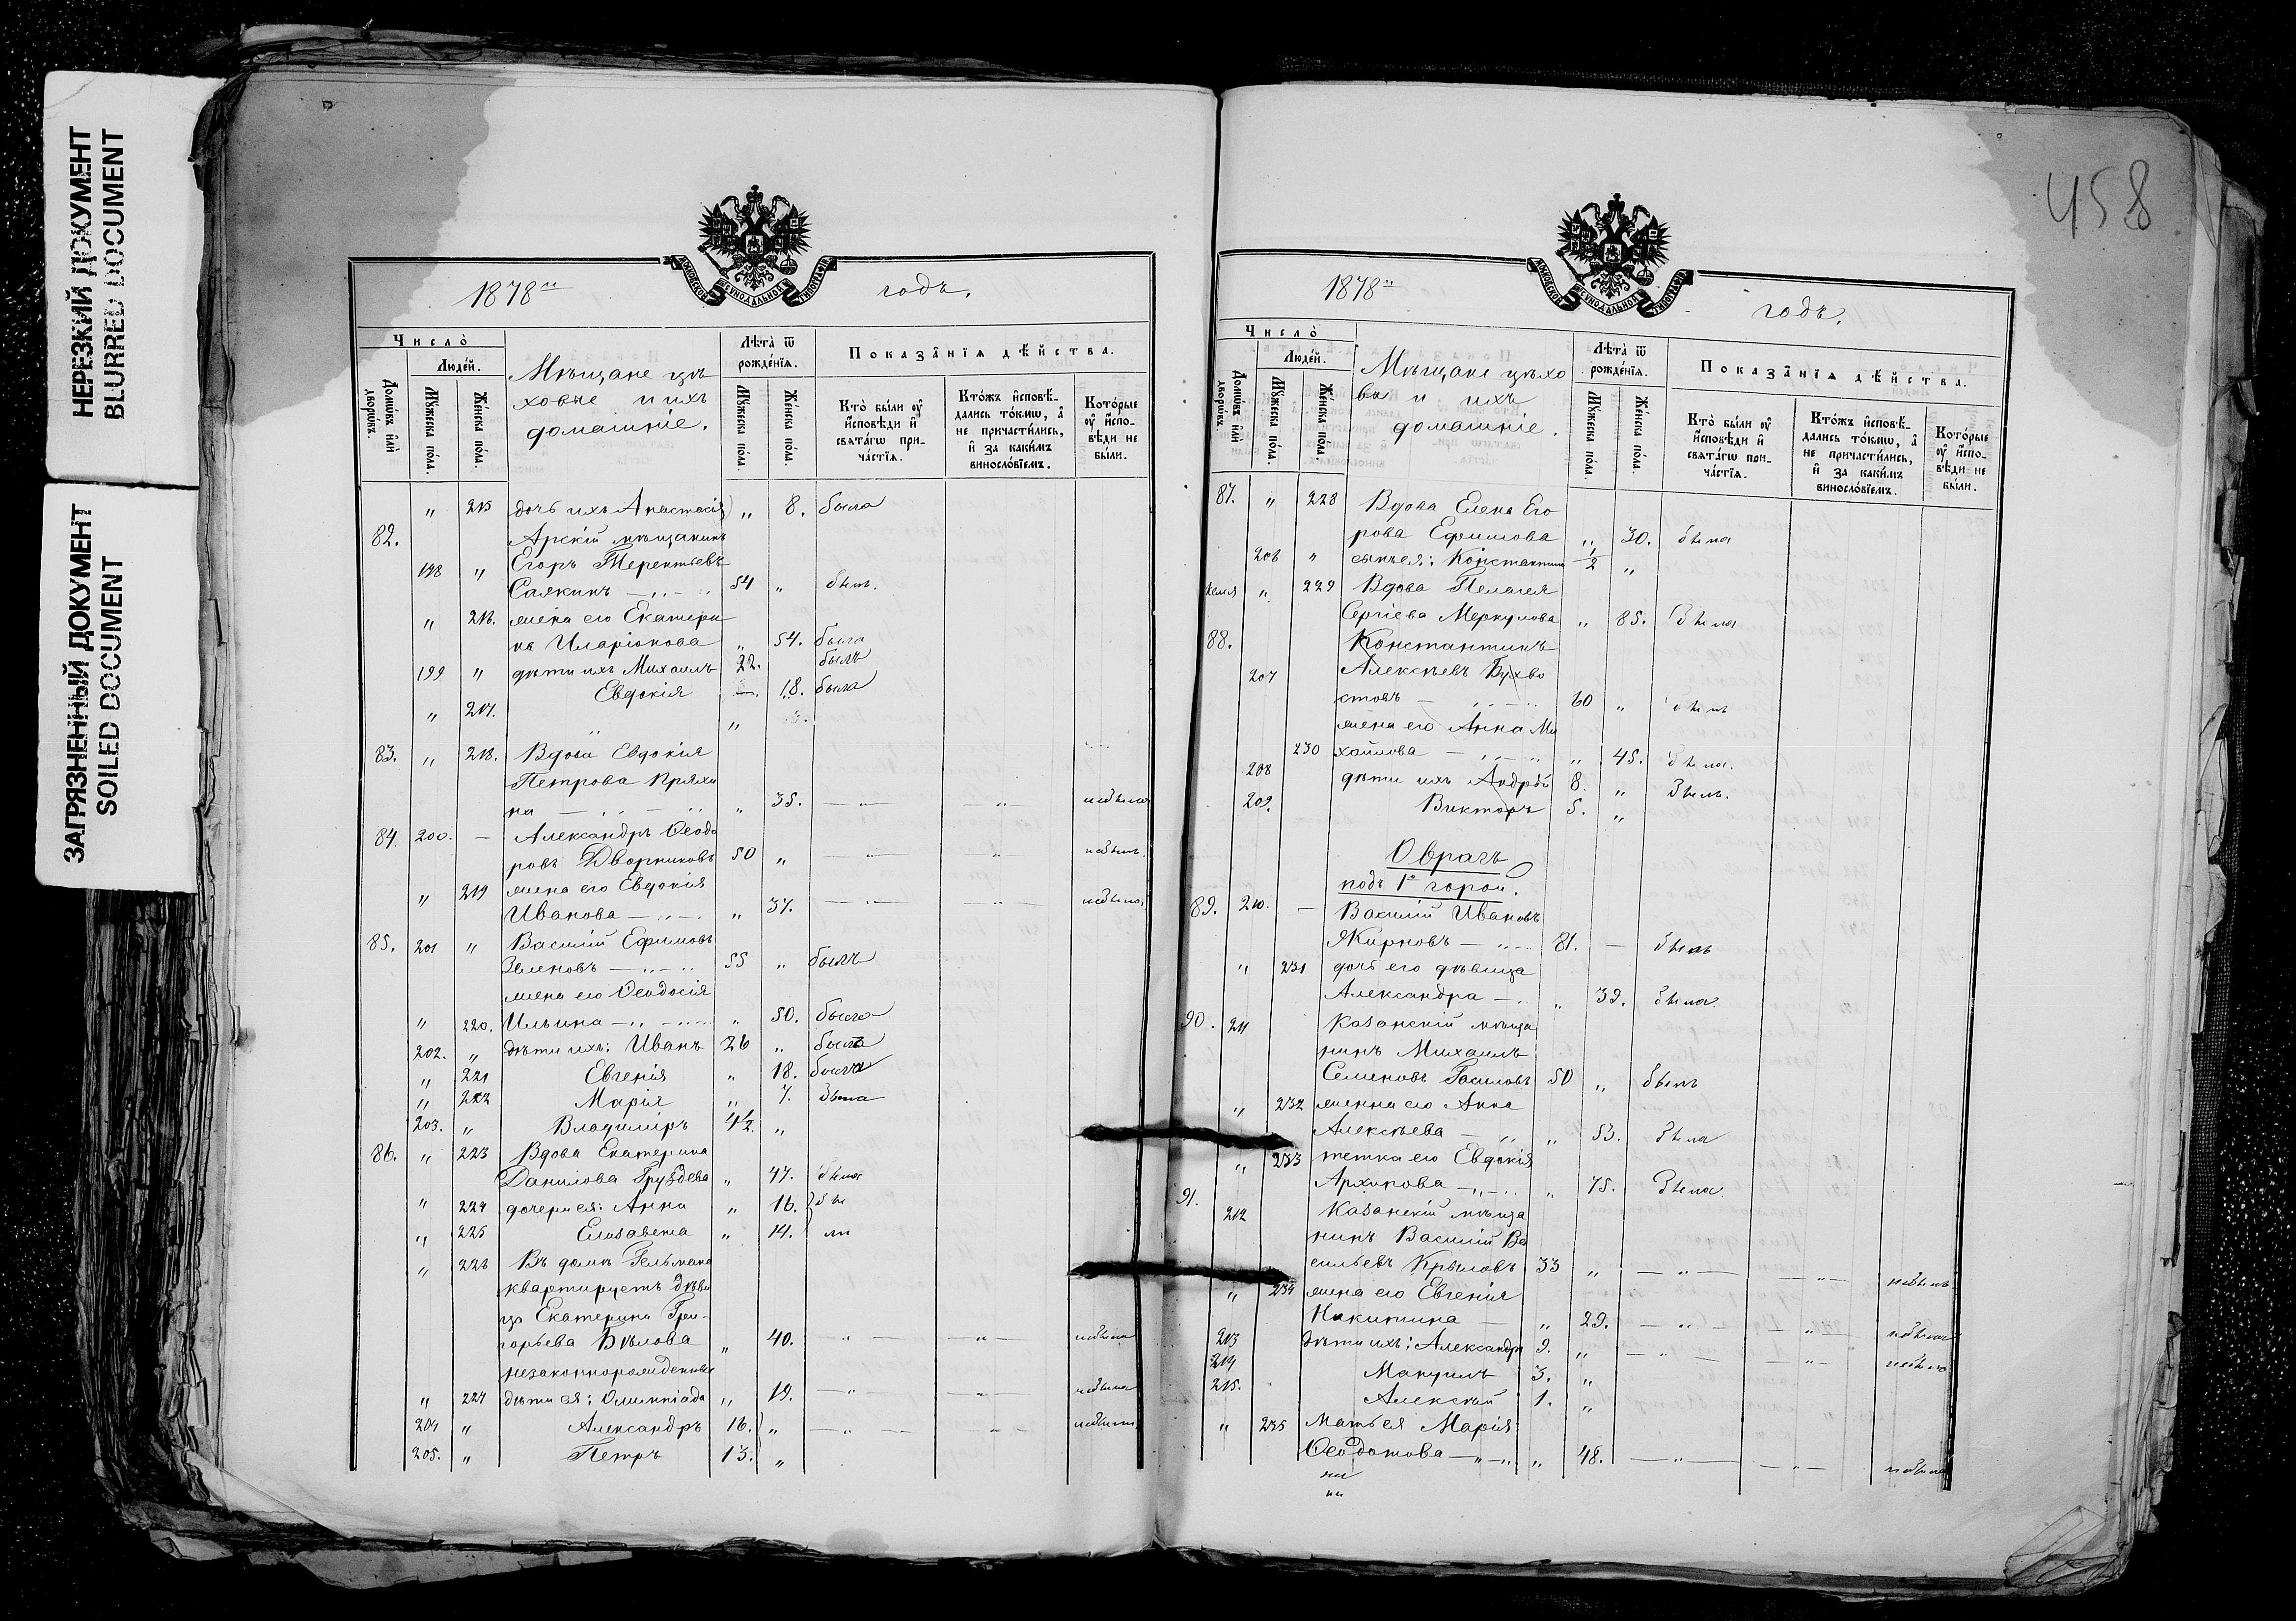 НЕРЕЗКИЙ ДОКУМЕНТ
BLURRED DOCUMENT
ЗАГРЯЗНЕННЫЙ ДОКУМЕНТ
SOILED DOCUMENT
1878 годъ.
Число̀
Людéй.
Домѡ́въ и҆лѝ дворѡ́въ.
Мꙋ́жеска по́ла.
Же́нска по́ла.
Мѣщане цѣ
ховые и ихъ
домашніе.
Лѣта̀ ѿ рожде́нїѧ.
Мꙋ́жеска по́ла.
Же́нска по́ла.
Показа̑нїѧ дѣ́йства.
Кто̀ бы́ли ᲂу҆ и҆сповѣ́ди и҆ свѧта́гѡ прича́стїѧ.
Кто́жъ и҆сповѣ́дались то́кмѡ, а҆ не причасти́лись, и҆ за каки́мъ винослóвїемъ.
Кото́рые ᲂу҆ и҆сповѣ́ди не бы́ли.
„ 215 дочь ихъ Анастасія „ 8. была
82. Арскій мѣщанинъ
198 „ Егоръ Терентьевъ
Саякинъ 54 „ былъ.
„ 216. жена его Екатери
на Иларіонова „ 54. была
199 „ дѣти ихъ Михаилъ 22. былъ
Евдокія — 18. была
„ 217. „
83. „ 218. Вдова Евдокія
Петрова Пряхи
на „ 35. — „ — „ — небыла
84. 200. — Александръ Ѳеодо
ровъ Дворниковъ 50 „ — „ — „ небылъ.
„ 219 жена его Евдокія
Иванова „ 37. — „ — „ — небыла
85. 201 „ Василій Ефимовъ
Зеленовъ 55 „ былъ
жена его Ѳеодосія
„ 220. Ильина „ 50. была
202. „ дѣти ихъ: Иванъ 26 „ былъ
„ 221 Евгенія „ 18. была
„ 222 Марія „ 7. была
203. „ Владиміръ 4½. „
86. „ 223 Вдова Екатерина
Данилова Груздева „ 47. была
„ 224 дочери ея: Анна „ 16. бы
„ 225 Елизавета „ 14. ли
„ 226 Въ домѣ Гельмана
квартируетъ дѣви
ца Екатерина Гри-
горьева Бѣлова „ 40. „ — „ — небыла
незаконнорожденные
„ 227 дѣти ея: Олимпіада „ 19. — „ „ небыла
204 „ Александръ 16. „ — „ — небылъ
205. „ Петръ 13. „
458
1878 годъ.
Число̀
Людéй.
Домѡ́въ и҆лѝ дворѡ́въ.
Мꙋ́жеска по́ла.
Же́нска по́ла.
Мѣщане цѣхо
вые и ихъ
домашніе.
Лѣта̀ ѿ рожде́нїѧ.
Мꙋ́жеска по́ла.
Же́нска по́ла.
Показа̑нїѧ дѣ́йства.
Кто̀ бы́ли ᲂу҆ и҆сповѣ́ди и҆ свѧта́гѡ прича́стїѧ.
Кто́жъ и҆сповѣ́дались то́кмѡ, а҆ не причасти́лись, и҆ за каки́мъ винослóвїемъ.
Кото́рые ᲂу҆ и҆сповѣ́ди не бы́ли.
87. „ 228 Вдова Елена Его
рова Ефимова „ 30. была
206 „ сынъ ея: Константинъ ½ „
„ 229 Вдова Пелагея
Сергіева Меркулова „ 85. была
88. Константинъ
207 Алексѣевъ Бухво
стовъ 60 „ былъ
жена его Анна Ми
230 хайлова „ 45. была.
208 дѣти ихъ Андрей 8. „ былъ.
209. Викторъ 5. „
Оврагъ
подъ 1й горой.
89. 210. — Василій Ивановъ
Жирновъ 81. — былъ
„ 231 дочь его дѣвица
Александра „ 39. была.
90. 211 Казанскій мѣща
нинъ Михаилъ
Семеновъ 50 „ былъ
„ 232 женна его Анна
Алексѣева „ 53. была
„ 233 тетка его Евдокія
Архипова „ 75. была.
91. 212 Казанскій мѣща
нинъ Василій Ва
сильевъ Крыловъ 33 „ — „ — „ — небылъ
„ 234 жена его Евгенія
Никитина „ 29. — „ — „ — небыла
213 дѣти ихъ: Александръ 9. „ — „ — „ — небылъ
214 Мануилъ 3. „
215. Алексѣй 1. „
„ 235 Мать ея Марія
Ѳеодотова „ 48. — „ — „ — небыла